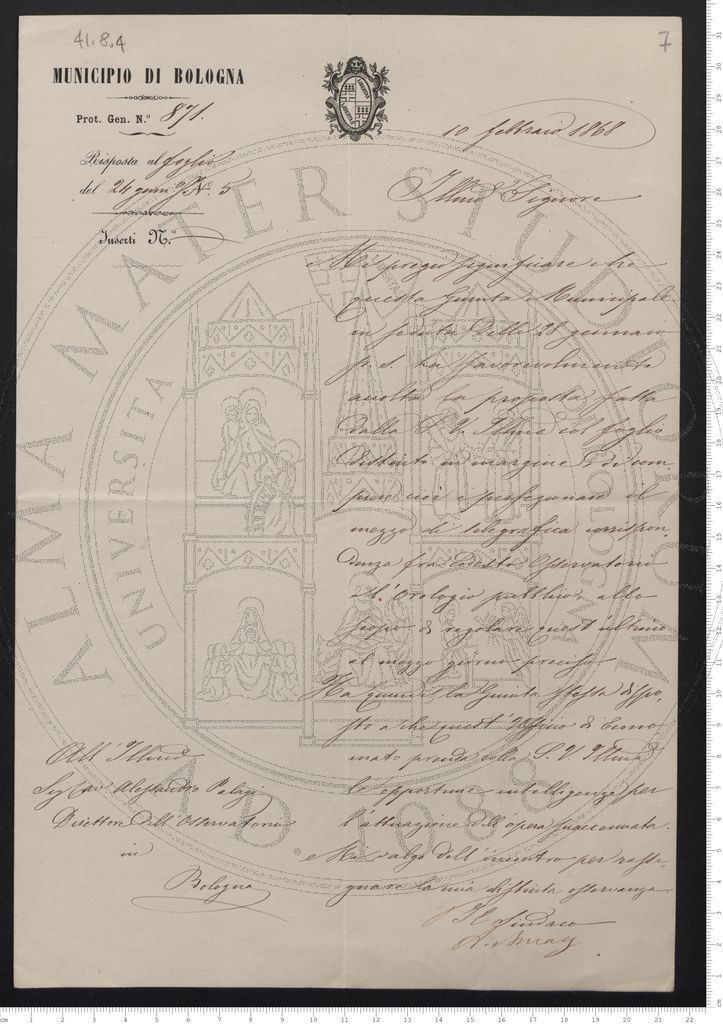 41.8.4
7
MUNICIPIO DI BOLOGNA
Prot. Gen. N.º 871.
10 febbraio 1868
Risposta al foglio
del 24 genn. N.º 5
Inserti N.º
Illmo Signore
Mi pregio significare che
questa Giunta Municipale
in seduta delli 28 gennaro
p. s. ha favorevolmente
accolta la proposta fatta
dalla S. V. Illma col foglio
distinto in margine, di com-
piere cioè e perfezionare il
mezzo di telegrafica corrispon-
denza fra codesto Osservatorio
e l'Orologio pubblico, allo
scopo di regolare quest'ultimo
al mezzo giorno preciso.
Ha quindi la Giunta stessa dispo-
sto a che quest'Ufficio di Econo-
mato prenda colla S. V. Illma
le opportune intelligenze per
l'attuazione dell'opera suaccennata.
Mi valgo dell'incontro per rasse-
gnare la mia distinta osservanza.
Il Sindaco
All' Illmo
Sig. Alessandro Palagi
Direttore dell'Osservatorio
in
Bologna
ALMA MATER STUDIORUM
UNIVERSITÀ DI BOLOGNA
A.D. 1088